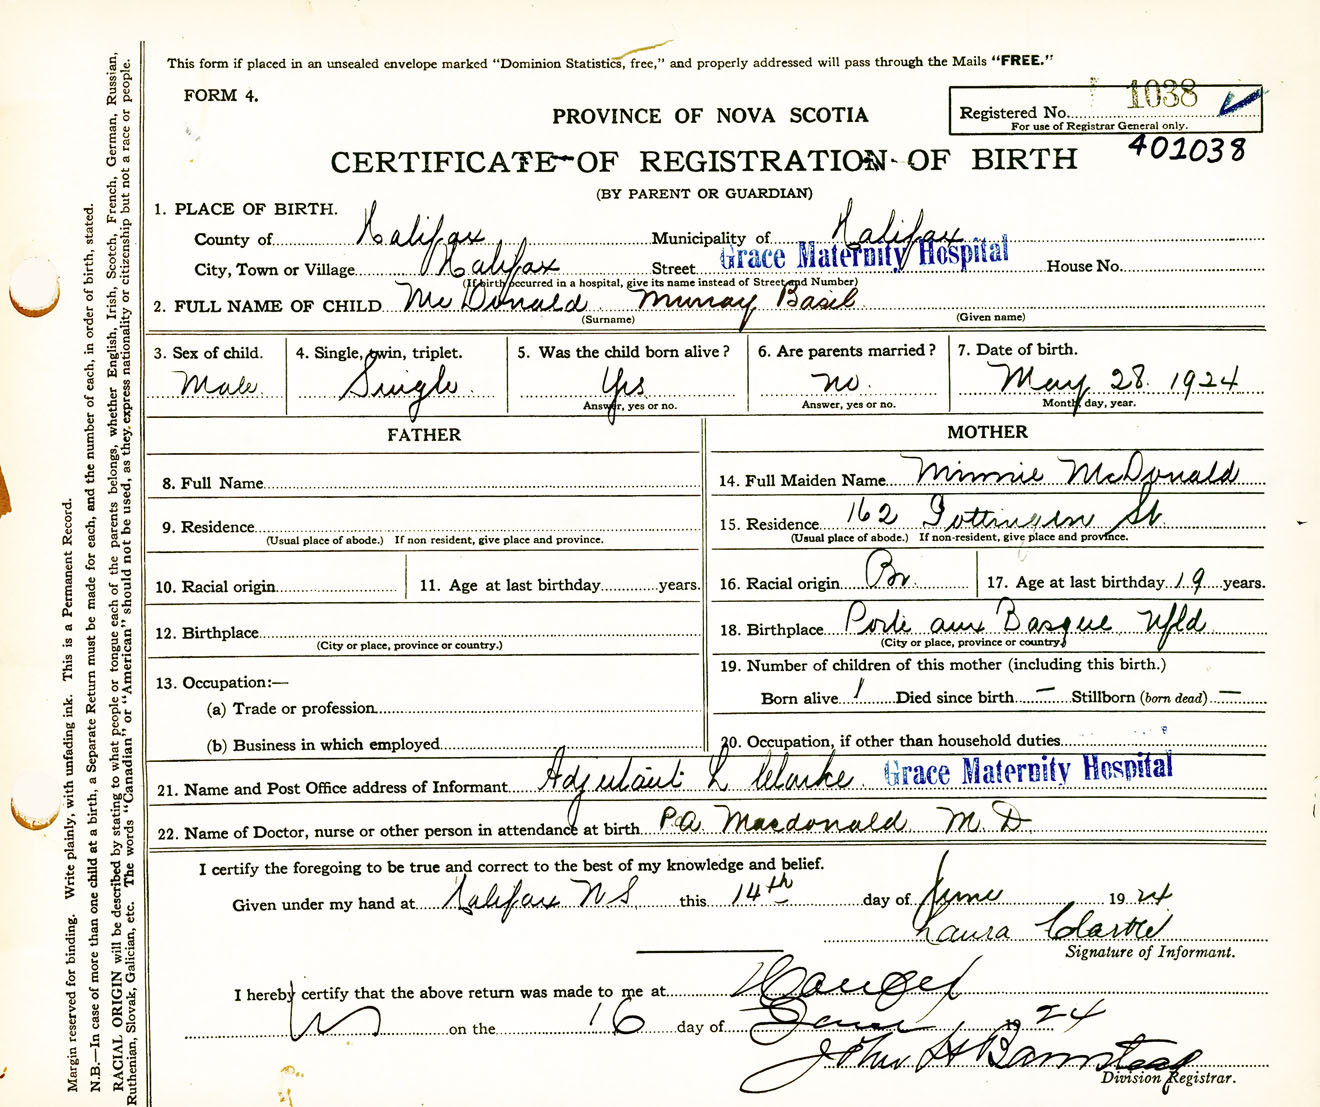 This form if placed in an unsealed envelope marked "Dominion Statistics, free," and properly addressed will pass through the Mails "FREE."
FORM 4.
PROVINCE OF NOVA SCOTIA
Registered No. 1038
For use of Registrar General only.
401038
CERTIFICATE OF REGISTRATION OF BIRTH
(BY PARENT OR GUARDIAN)
1. PLACE OF BIRTH.
County of Halifax Municipality of Halifax
City, Town or Village Halifax Street Grace Maternity Hospital House No.
(If birth occurred in a hospital, give its name instead of Street and Number)
2. FULL NAME OF CHILD McDonald Murray Basil
(Surname) (Given name)
3. Sex of child. 4. Single, twin, triplet. 5. Was the child born alive? 6. Are parents married? 7. Date of birth.
Male Single Yes no. May 28 1924
Answer, yes or no. Answer, yes or no. Month, day, year.
FATHER
8. Full Name
9. Residence
(Usual place of abode.) If non resident, give place and province.
10. Racial origin 11. Age at last birthday years.
12. Birthplace
(City or place, province or country.)
13. Occupation:—
(a) Trade or profession
(b) Business in which employed
MOTHER
14. Full Maiden Name Minnie McDonald
15. Residence 162 Gottingen St
(Usual place of abode.) If non-resident, give place and province.
16. Racial origin Br. 17. Age at last birthday 19 years.
18. Birthplace Porte aux Basque Nfld
(City or place, province or country)
19. Number of children of this mother (including this birth.)
Born alive 1 Died since birth — Stillborn (born dead) —
20. Occupation, if other than household duties
21. Name and Post Office address of Informant Adjutant L Clarke. Grace Maternity Hospital
22. Name of Doctor, nurse or other person in attendance at birth P.A. Macdonald M.D
I certify the foregoing to be true and correct to the best of my knowledge and belief.
Given under my hand at Halifax N S this 14th day of June 1924
Laura Clarke
Signature of Informant.
I hereby certify that the above return was made to me at
on the 16 day of June 1924
John H Barnstead
Division Registrar.
Margin reserved for binding. Write plainly, with unfading ink. This is a Permanent Record.
N.B.—In case of more than one child at a birth, a Separate Return must be made for each, and the number of each, in order of birth, stated.
RACIAL ORIGIN will be described by stating to what people or tongue each of the parents belongs, whether English, Irish, Scotch, French, German, Russian,
Ruthenian, Slovak, Galician, etc. The words "Canadian" or "American" should not be used, as they express nationality or citizenship but not a race or people.